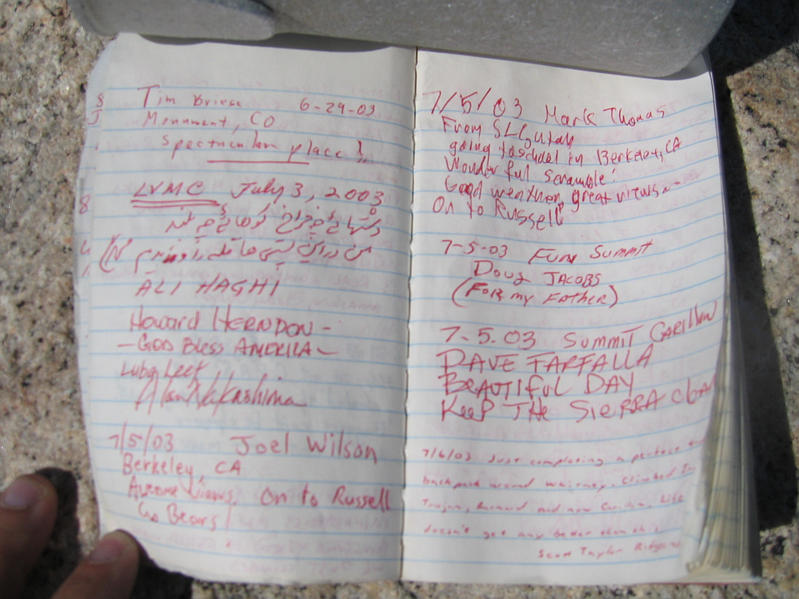 Tim Briese 6-29-03
Monument, CO
Spectacular place!
LVMC July 3, 2003
ALI HAGHI
Howard HERNDON -
- GOD BLESS AMERICA -
Luba Leef
Alan Nakashima
7/5/03 Joel Wilson
Berkeley, CA
Awesome Views. On to Russell
Go Bears!
7/5/03 Mark Thomas
From SLC, Utah
going to school in Berkeley, CA
Wonderful scramble!
Good weather, great views~
On to Russell
7-5-03 Fun Summit
Doug JACOBS
(FOR my FATHER)
7-5-03 Summit Carillon
DAVE FARFALLA
BEAUTIFUL DAY
Keep THE SIERRA clean
7/6/03 Just completing a perfect
backpack around Whitney. Climbed
Trojan, Barnard and now Carillon. Life
doesn't get any better than this.
Scott Taylor